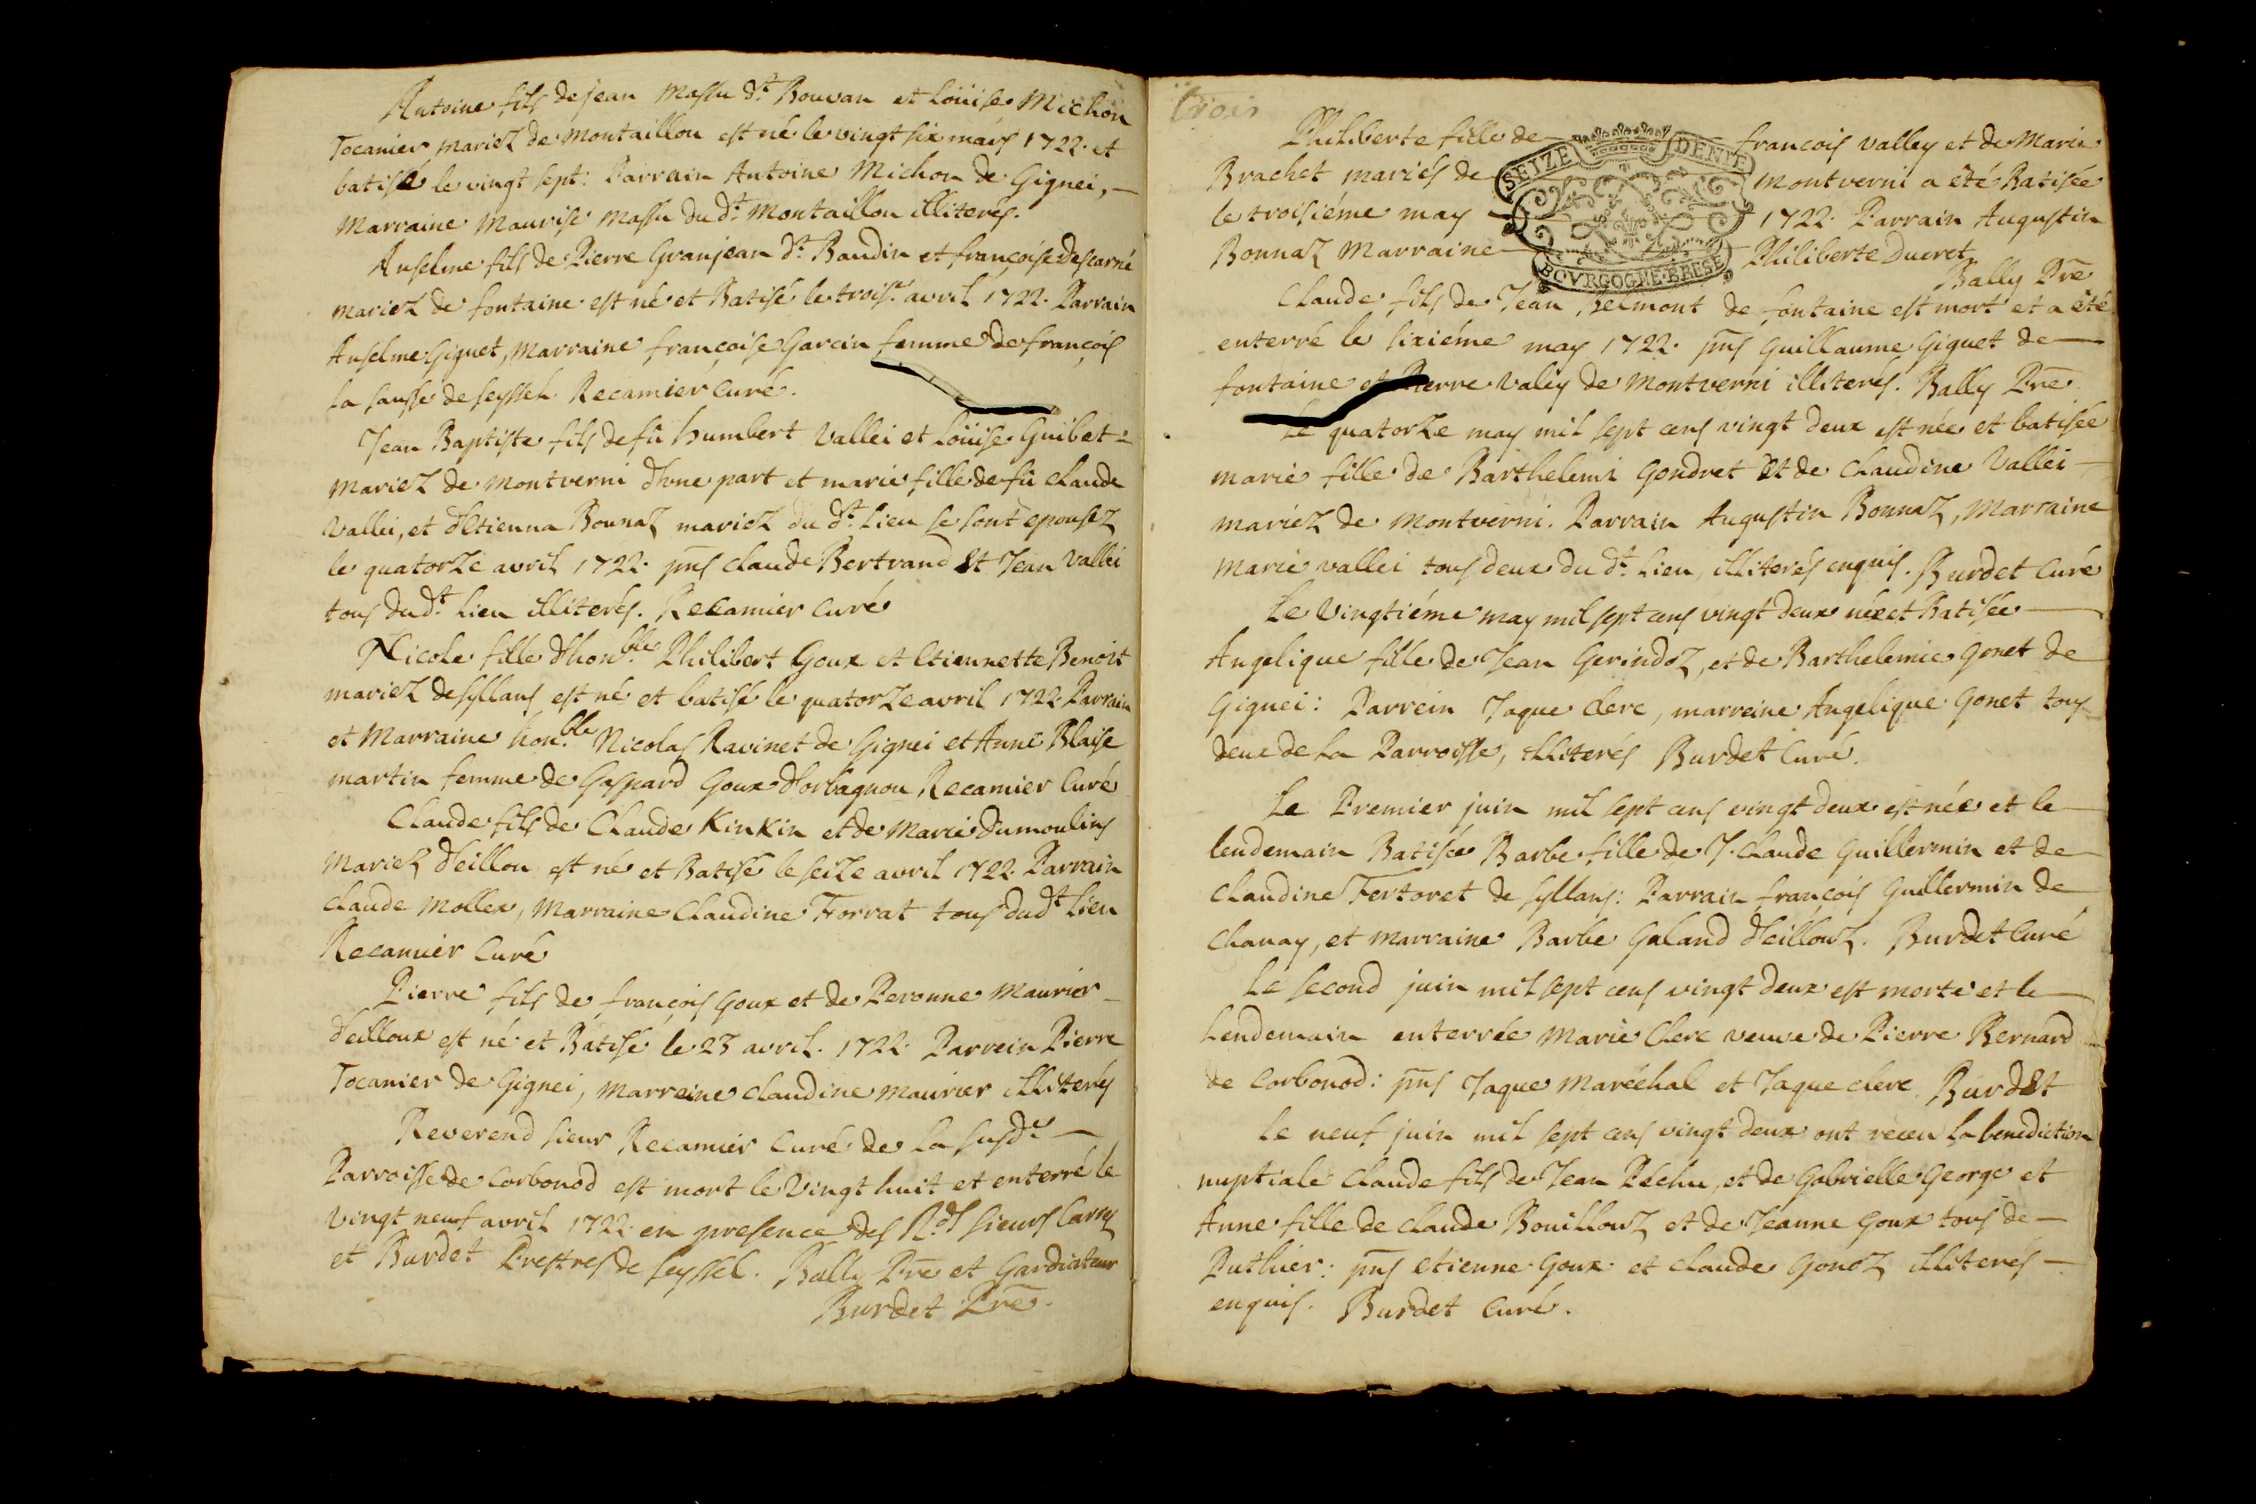 Antoine fils de jean Massu dt. Bouvan et Loüise Michon
Tocanier mariez de montaillou est né le vingt six mars 1722. et
batisé le vingt sept: Parrain Antoine Michon de Gignei,
marraine Maurise Massu du dt. Montaillou illiterés.
Anselme fils de Pierre Granjean dt. Baudin et françoise Descarne
mariez de fontaine est né et Batisé le troise. avril 1722. Parrain
Anselme Giguet, marraine françoise Garcin femme de françois
la sausse de seyssel. Recamier Curé.
Jean Baptiste fils de fû humbert Vallei et Loüise Guibet
mariez de montverni d'hune part et marie fille de fû claude
Vallei, et d'Etienna Bonnaz mariez du dt. Lieu se sont epousez
le quatorze avril 1722. pns claude Bertrand Et Jean Vallei
tous du dt. Lieu illiterés. Recamier Curé
Nicole fille d'honble. Philibert Goux et Etiennette Benoit
mariez de syllans est né et batisé le quatorze avril 1722. Parrain
et Marraine honble. Nicolas Ravinet de Gignei et Anne Blaise
martin femme de Gaspard Goux d'orbagnou Recamier Curé
Claude fils de Claude Kinkin et de Marie Dumoulins
Mariez d'eillou est né et Batisé le seize avril 1722. Parrain
claude Mollex, Marraine Claudine Forrat tous du dt Lieu
Recamier Curé
Pierre fils de françois Goux et de Peronne Maurier
d'eilloux est né et Batisé le 23 avril. 1722. Parrein Pierre
Tocanier de Gignei, Marreine claudine Maurier illiterés
Reverend sieur Recamier Curé de la susde
Parroisse de Corbonod est mort le vingt huit et enterré le
vingt neuf avril 1722. en presence des Rds sieurs
et Burdet Prestres de seyssel. Bally Pre et Gardiateur
Burdet Pre.
trois
Philiberte fille de françois valley et de Marie
Brachet mariés de Montverni a été Batisée
le troisiéme may 1722. Parrain Augustin
Bonnaz Marraine Philiberte Ducret
SEIZE DENIE
BOVRGOGNE-BRESE
Bally Pre
Claude fils de Jean Belmont de fontaine est mort et a été
enterré le sixiéme may 1722. pns Guillaume Giguet de
fontaine et Pierre Valey de Montverni illiterés. Bally Pre
Le quatorze may mil sept cens vingt deux est née et batisée
marie fille de Barthelemi Gondret Et de Claudine Vallei
mariez de Montverni. Parrain Augustin Bonnaz, Marraine
Marie vallei tous deux du dt. Lieu, illiterés enquis. Burdet Curé
Le Vingtiéme may mil sept cens vingt deux née et Batisée
Angelique fille de Jean Gerindoz, et de Barthelemie Gonet de
Gignei: Parrein Jaque clerc, marreine Angelique Gonet tous
deux de la Parroisse, illiterés Burdet Curé.
Le Premier juin mil sept cens vingt deux est née et le
lendemain Batisée Barbe fille de J. Claude Guillermin et de
Claudine Fertoret de syllans: Parrain françois Guillermin de
Chanay, et marraine Barbe Galand d'eillouz. Burdet Curé
Le second juin mil sept cens vingt deux est morte et le
Lendemain enterrée Marie Clerc veuve de Pierre Bernard
de Corbonod: pns Jaque Maréchal et Jaque clerc. Burdet
Le neuf juin mil sept cens vingt deux ont receu la benediction
nuptiale Claude fils de Jean Péchu, et de Gabrielle George et
Anne fille de claude Bouillouz et de Jeanne Goux tous de
Puthier: pns etienne Goux et claude Gonez illiterés
enquis. Burdet Curé.